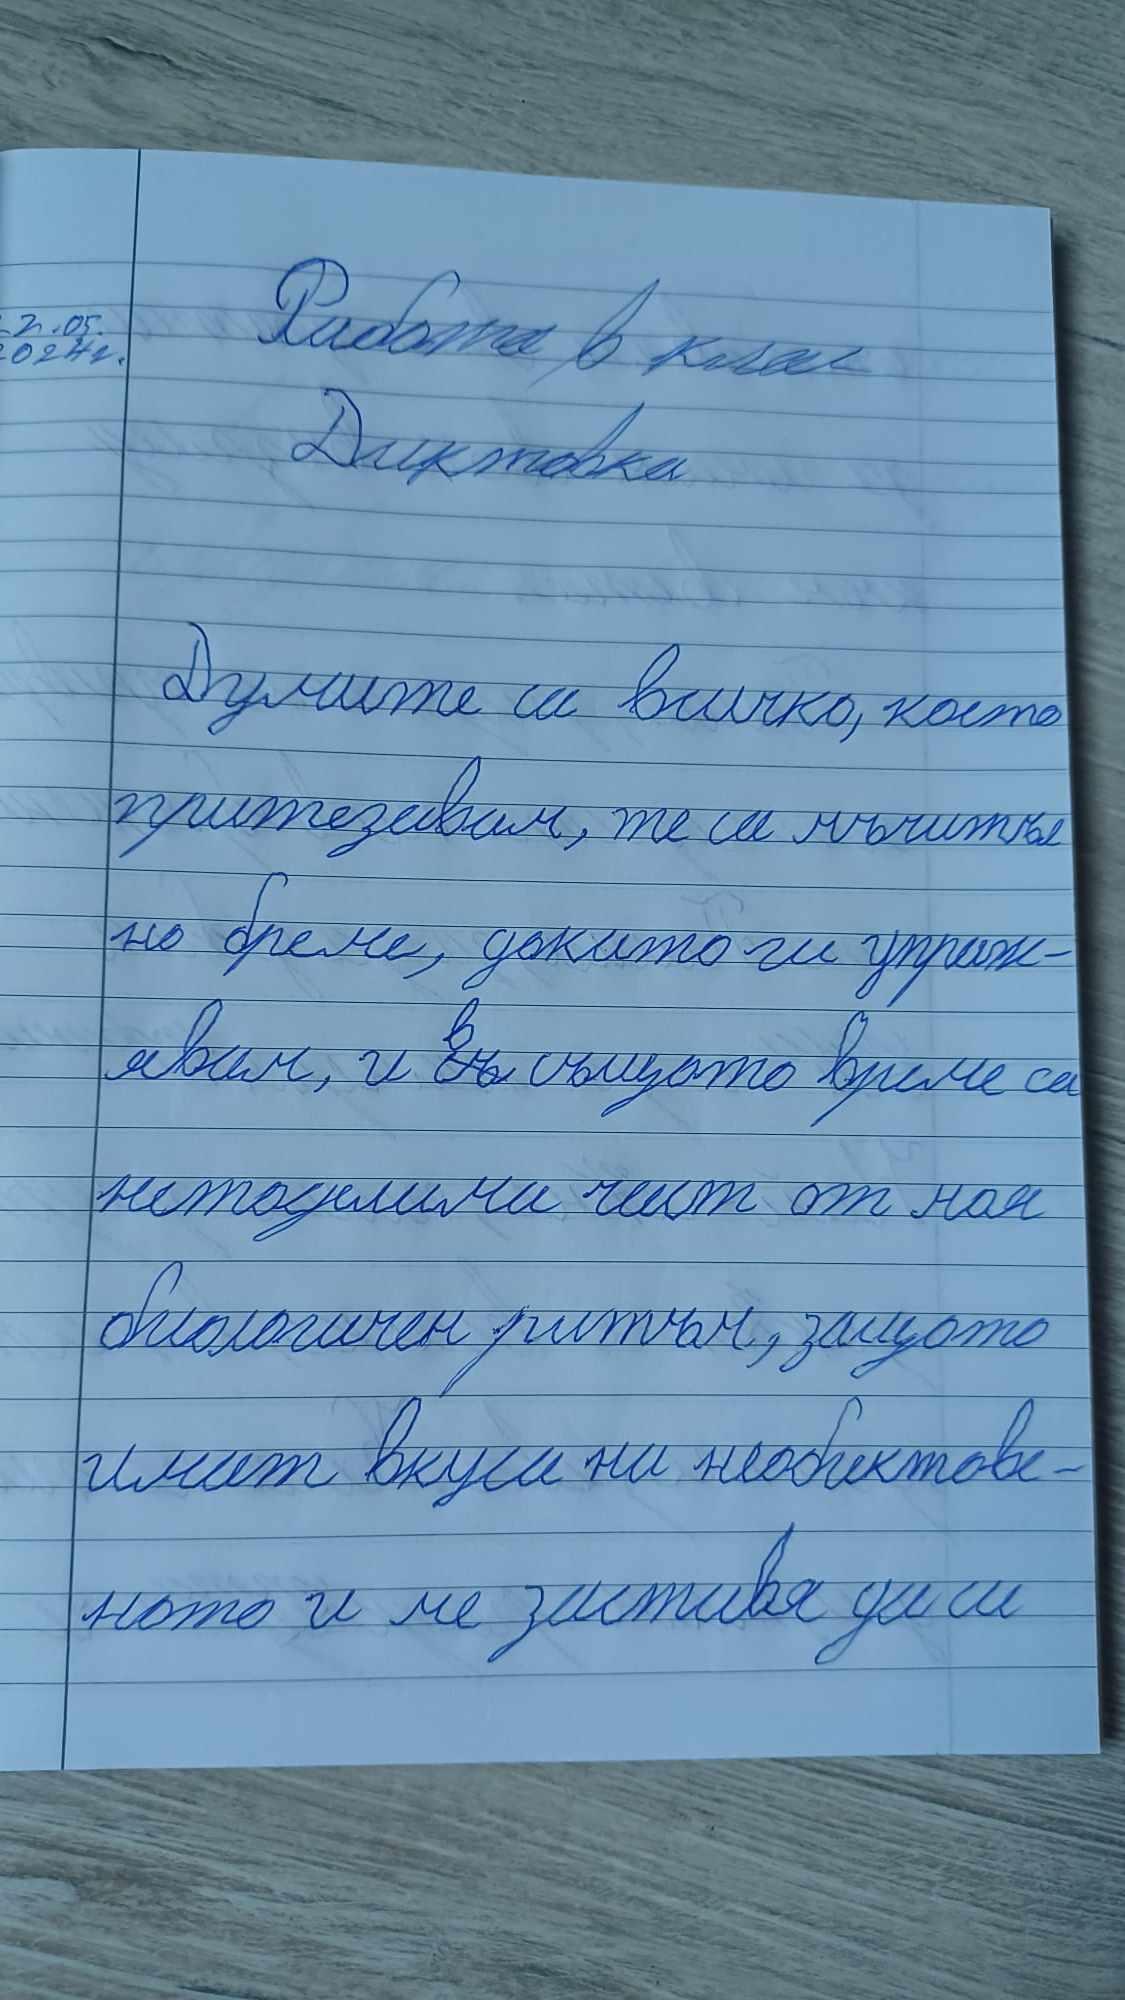 22.05.
2024г.
Работа в клас
Диктовка
Думите са всичко, коeто
притезавам, те са мъчитъл
но бреме, докато ги упраж-
явам, и в същото време са
нетоделими част от моя
биологичен ритъм, защото
имат вкуса на необектове-
ното и ме заставя да са